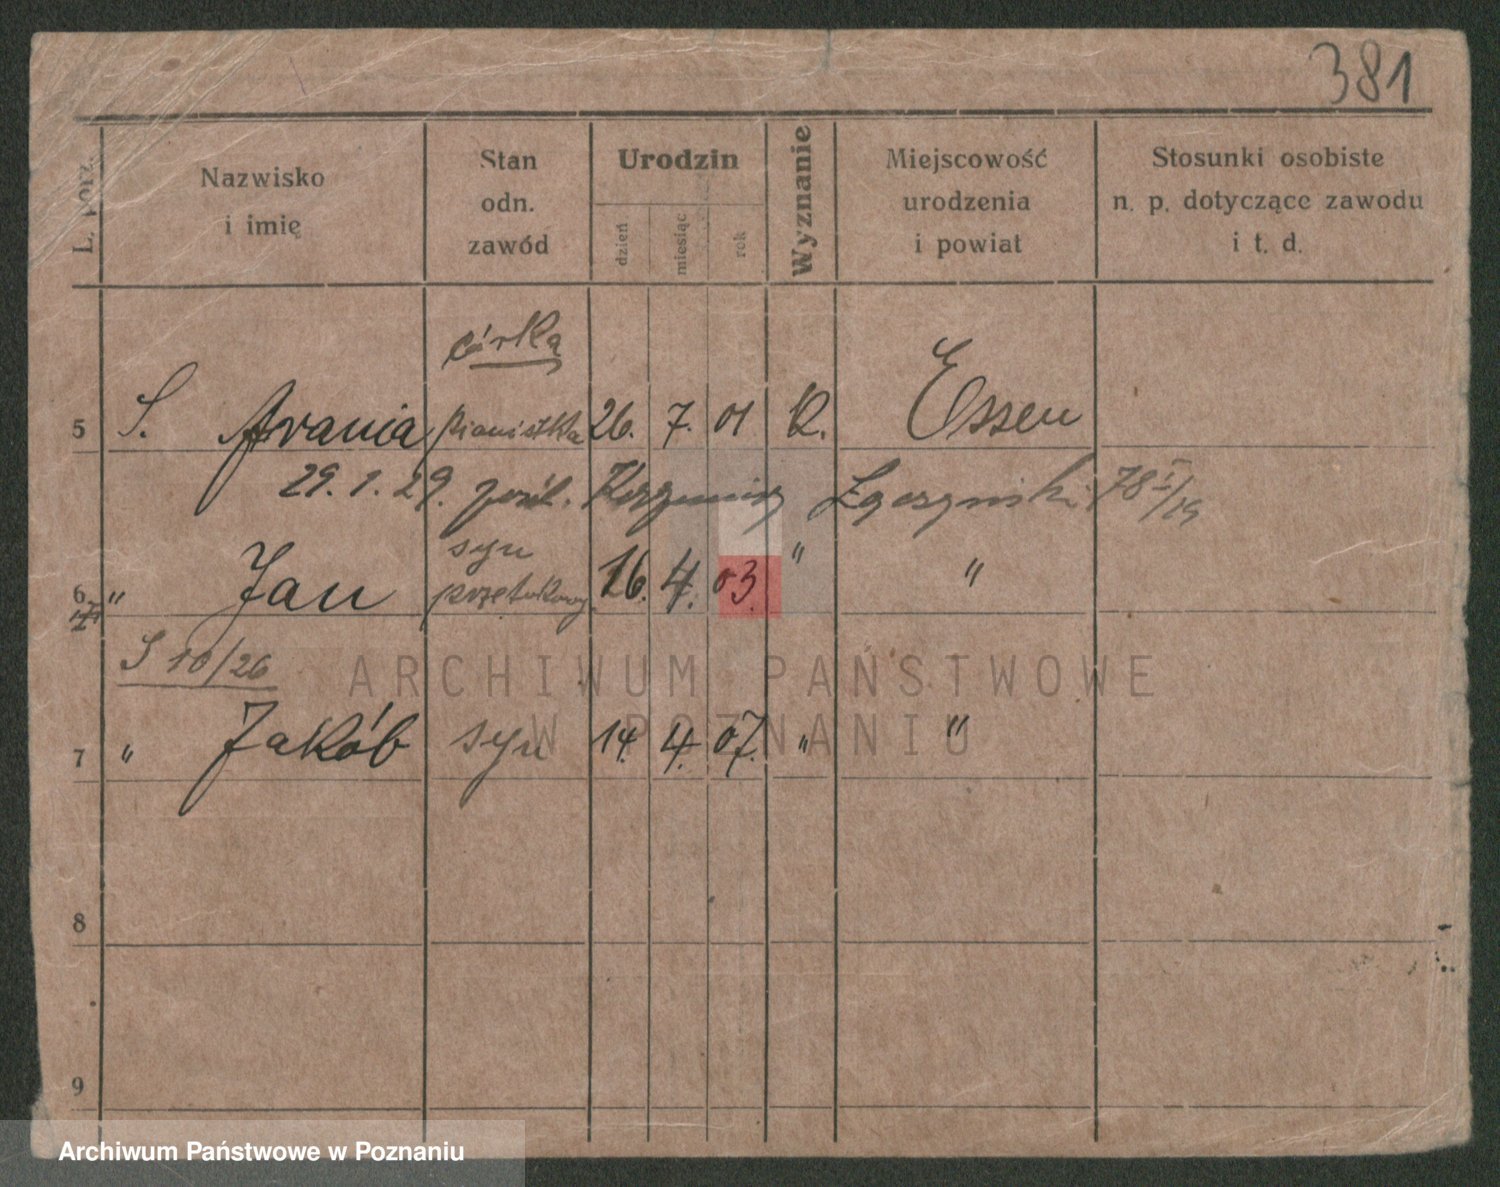 381
L. porz.
Nazwisko
i imię
Stan
odn.
zawód
Urodzin
dzień
miesiąc
rok
Wyznanie
Miejscowość
urodzenia
i powiat
Stosunki osobiste
n. p. dotyczące zawodu
i t. d.
córka
5 S. Frania pianistka 26. 7. 01 R. Essen
29. 1. 29. pośl. Kazimierz Łączyński 78 I/29
syn
6 " Jan 16. 4. 03. " "
S 10/26
7 " Jakób syn 14. 4. 07. " "
8
9
ARCHIWUM PAŃSTWOWE
W POZNANIU
Archiwum Państwowe w Poznaniu